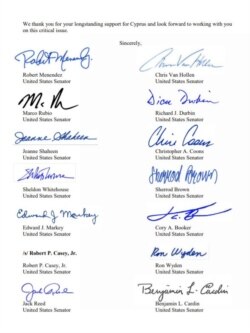 We thank you for your longstanding support for Cyprus and look forward to working with you
on this critical issue.
Sincerely,
Robert Menendez
Chris Van Hollen
Robert Menendez
United States Senator
Chris Van Hollen
United States Senator
Marco Rubio
United States Senator
Richard J. Durbin
United States Senator
Jeanne Shaheen
Chris Coons
Jeanne Shaheen
United States Senator
Christopher A. Coons
United States Senator
Sherrod Brown
Sheldon Whitehouse
United States Senator
Sherrod Brown
United States Senator
Edward J. Markey
Edward J. Markey
United States Senator
Cory A. Booker
United States Senator
/s/ Robert P. Casey, Jr.
Ron Wyden
Robert P. Casey, Jr.
United States Senator
Ron Wyden
United States Senator
Jack Reed
Benjamin L. Cardin
Jack Reed
United States Senator
Benjamin L. Cardin
United States Senator